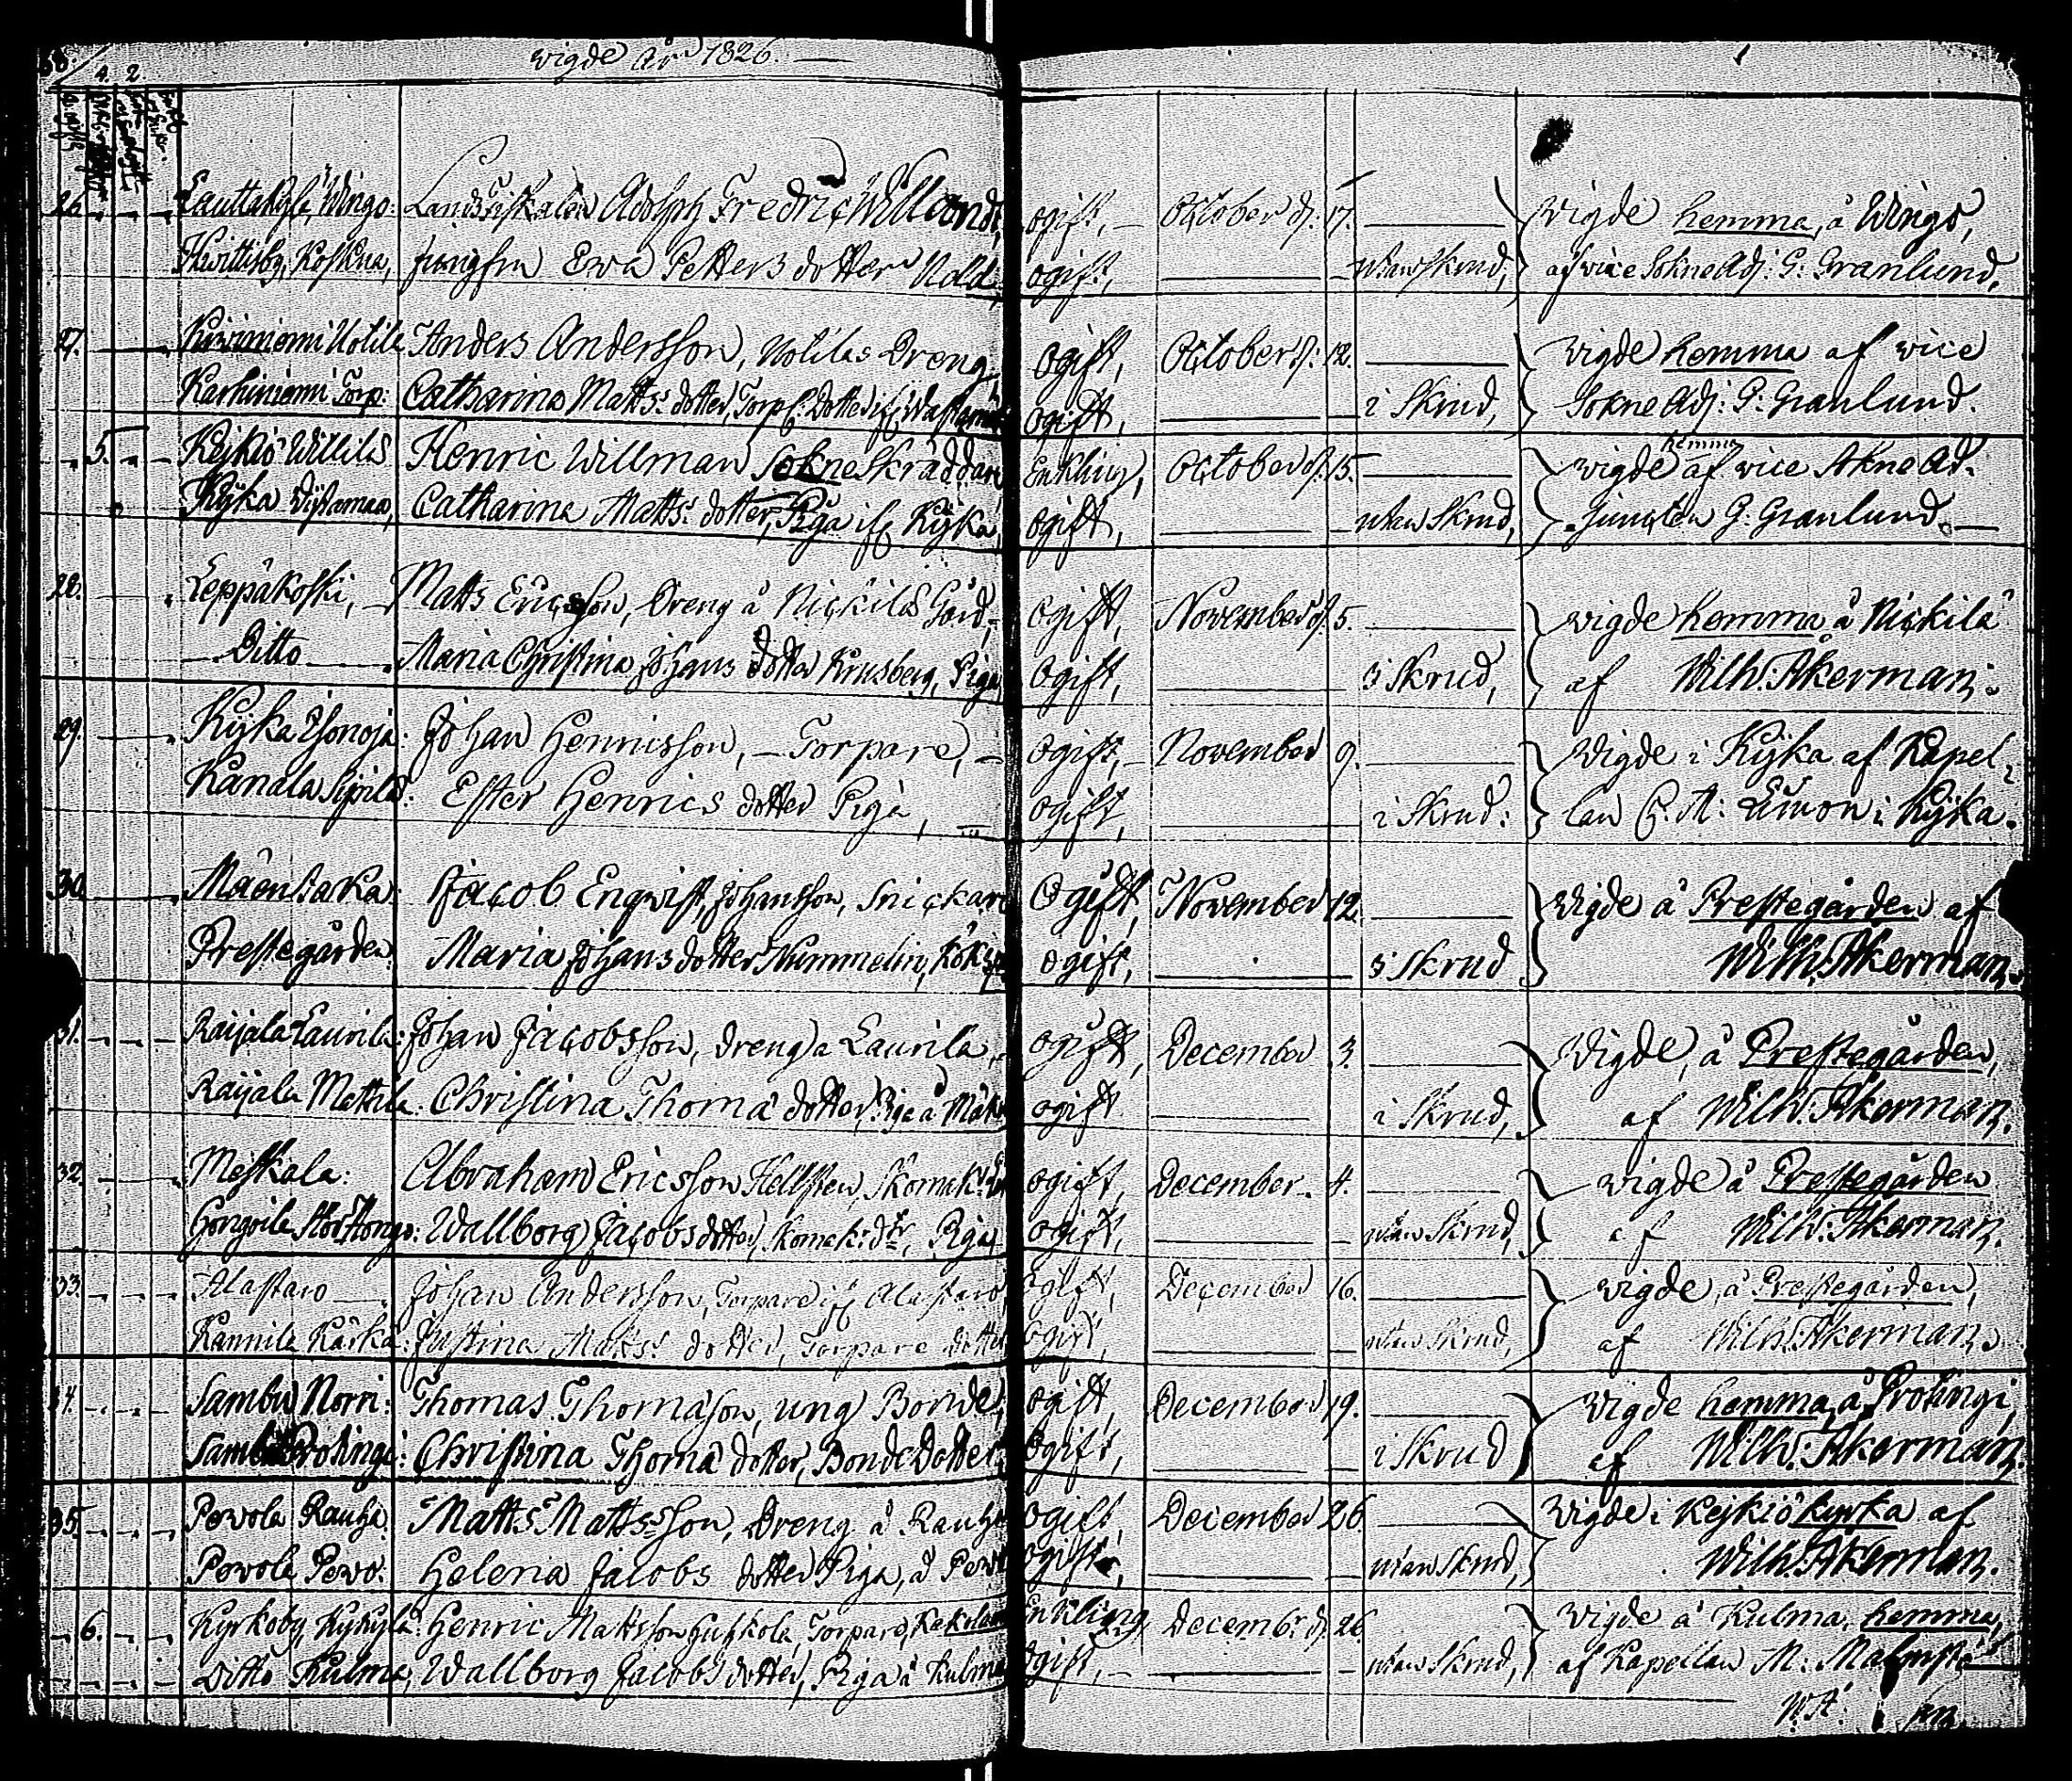 wigde år 1826.
4. 2.
26. Lauttakylä Wingo: Landsfiskalen Adolph Fredric Willandt, ogift, October d. 17. wigde hemma, å Wingo,
Hwittisby, Koskua, jungfru Ewa Petters dotter Nold, ogift, utan Skrud, af vice SokneAdj: G: Granlund,
27. Kiwiniemi Uotila Anders Andersson, Uotilas Dreng, ogift, October d. 12. wigde hemma af vice
Karhiniemi Torp: Catharina Matts: dotter, Torp: Dotter ogift, i Skrud, SokneAdj: G: Granlund.
5. Kejkiö Willilä Henric Willman SokneSkräddare Enkling, October d. 15. wigde hemma af vice SokneAd-
Kyka Wistamaa, Catharina Matts: dotter, Piga ifr Kyka, ogift, utan Skrud, juncten G: Granlund.
28. Leppäkoski, Matts Ericsson, Dreng å Nickilä Gård, ogift, November d. 5. wigde hemma å Nickilä
Ditto Maria Christina Johans dotter Krusberg, Piga ogift, i Skrud, af Wilh: Åkerman.
29. Kyka Isonoja: Johan Henricsson, Torpare, ogift, November 9. Wigde i Kyka af Kapel-
Kanala Sipilä: Ester Henrics dotter Piga, ogift, i Skrud: lan i Kyka.
30. Mäenkaka: Jacob Enqvist, Johansson, Snickare Ogift, November 12. Wigde å Prestegården af
Prestegården: Maria Johans dotter Nummelin, Köksp: ogift, i Skrud Wilh. Åkerman.
31. Raijala Laurila: Johan Jacobsson, dreng å Laurila, ogift, December 3. Wigde, å Prestegården,
Raijala Mattila: Christina Thoma dotter, Piga å ogift i Skrud, af Wilh. Åkerman.
32. Meskala: Abraham Ericsson Hellsten, Skomak: ogift, December. 4. wigde å Prestegården
Gongoila StorHongo: Wallborg Jacobs dotter, Skomak: dtr, Piga, ogift, utan Skrud, af Wilh: Åkerman.
33. Alastaro Johan Andersson, Torpare ifr Alastaro, ogift, December 16. wigde, å Prestegården,
Kannila Kärkä: Justina Matts: dotter, Torpare dotter ogift, utan Skrud, af Wilh: Åkerman.
34. Sambu Norri: Thomas Thomasson, ung Bonde, ogift, December 19. Wigde hemma, å Prohingi,
Sambu Prohingi: Christina Thoma dotter, Bonde Dotter, ogift, i Skrud af Wilh: Åkerman.
35. Pewola Rauha: Matts Mattsson, Dreng å Rauha ogift, December 26. Wigde i Kejkiö kyrka af
Pewola Pewo: Helena Jacobs dotter Piga, å Pewo ogift, utan Skrud, Wilh: Åkerman.
6. Kyrkoby, Kyhylä: Henric Mattsson Huhkola, Torpare, Enkling, Decemb:r d. 26. Wigde å Kulma, hemma,
Ditto Kulma, Wallborg Jacobs dotter, Piga å Kulma ogift, utan Skrud, af Kapellan M: Malmsté